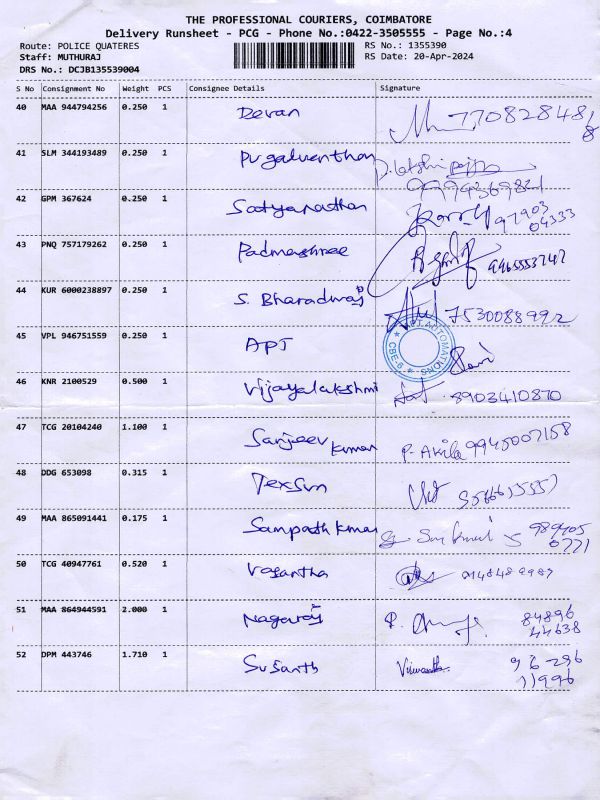 THE PROFESSIONAL COURIERS, COIMBATORE
Delivery Runsheet - PCG - Phone No.:0422-3505555 - Page No.:4
Route: POLICE QUATERES RS No.: 1355390
Staff: MUTHURAJ RS Date: 20-Apr-2024
DRS No.: DCJB135539004
S No Consignment No Weight PCS Consignee Details Signature
40 MAA 944794256 0.250 1 Devan
41 SLM 344193489 0.250 1 Pugalventhan
9994369821
42 GPM 367624 0.250 1 Satyanathan 97903
04333
43 PNQ 757179262 0.250 1 Padmashree
44 KUR 6000238897 0.250 1 S. Bharadwaj 7530088992
45 VPL 946751559 0.250 1 APT
APT AUTOMATIONS CBE-6
46 KNR 2100529 0.500 1 Vijayalakshmi 8903410870
47 TCG 20104240 1.100 1 Sanjeev
Kumar P. Akila 9945007158
48 DDG 653098 0.315 1 Texsun
49 MAA 865091441 0.175 1 Sampath Kumar
0771
50 TCG 40947761 0.520 1 Vasantha
51 MAA 864944591 2.000 1 Nagaraj P. 84896
44638
52 DPM 443746 1.710 1 Susanth 96296
11996